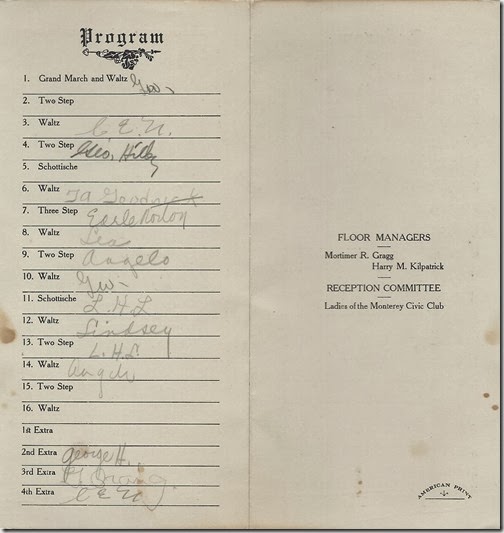 Program
1. Grand March and Waltz Gw-
2. Two Step
3. Waltz C. E. U.
4. Two Step Geo. Hilby
5. Schottische
6. Waltz
7. Three Step Earle
8. Waltz Les
9. Two Step Angelo
10. Waltz Gw-
11. Schottische L. H. L
12. Waltz Lindsey
13. Two Step L. H. L.
14. Waltz Angelo
15. Two Step
16. Waltz
1st Extra
2nd Extra George H.
3rd Extra
4th Extra C E U
FLOOR MANAGERS
Mortimer R. Gragg
Harry M. Kilpatrick
RECEPTION COMMITTEE
Ladies of the Monterey Civic Club
AMERICAN PRINT